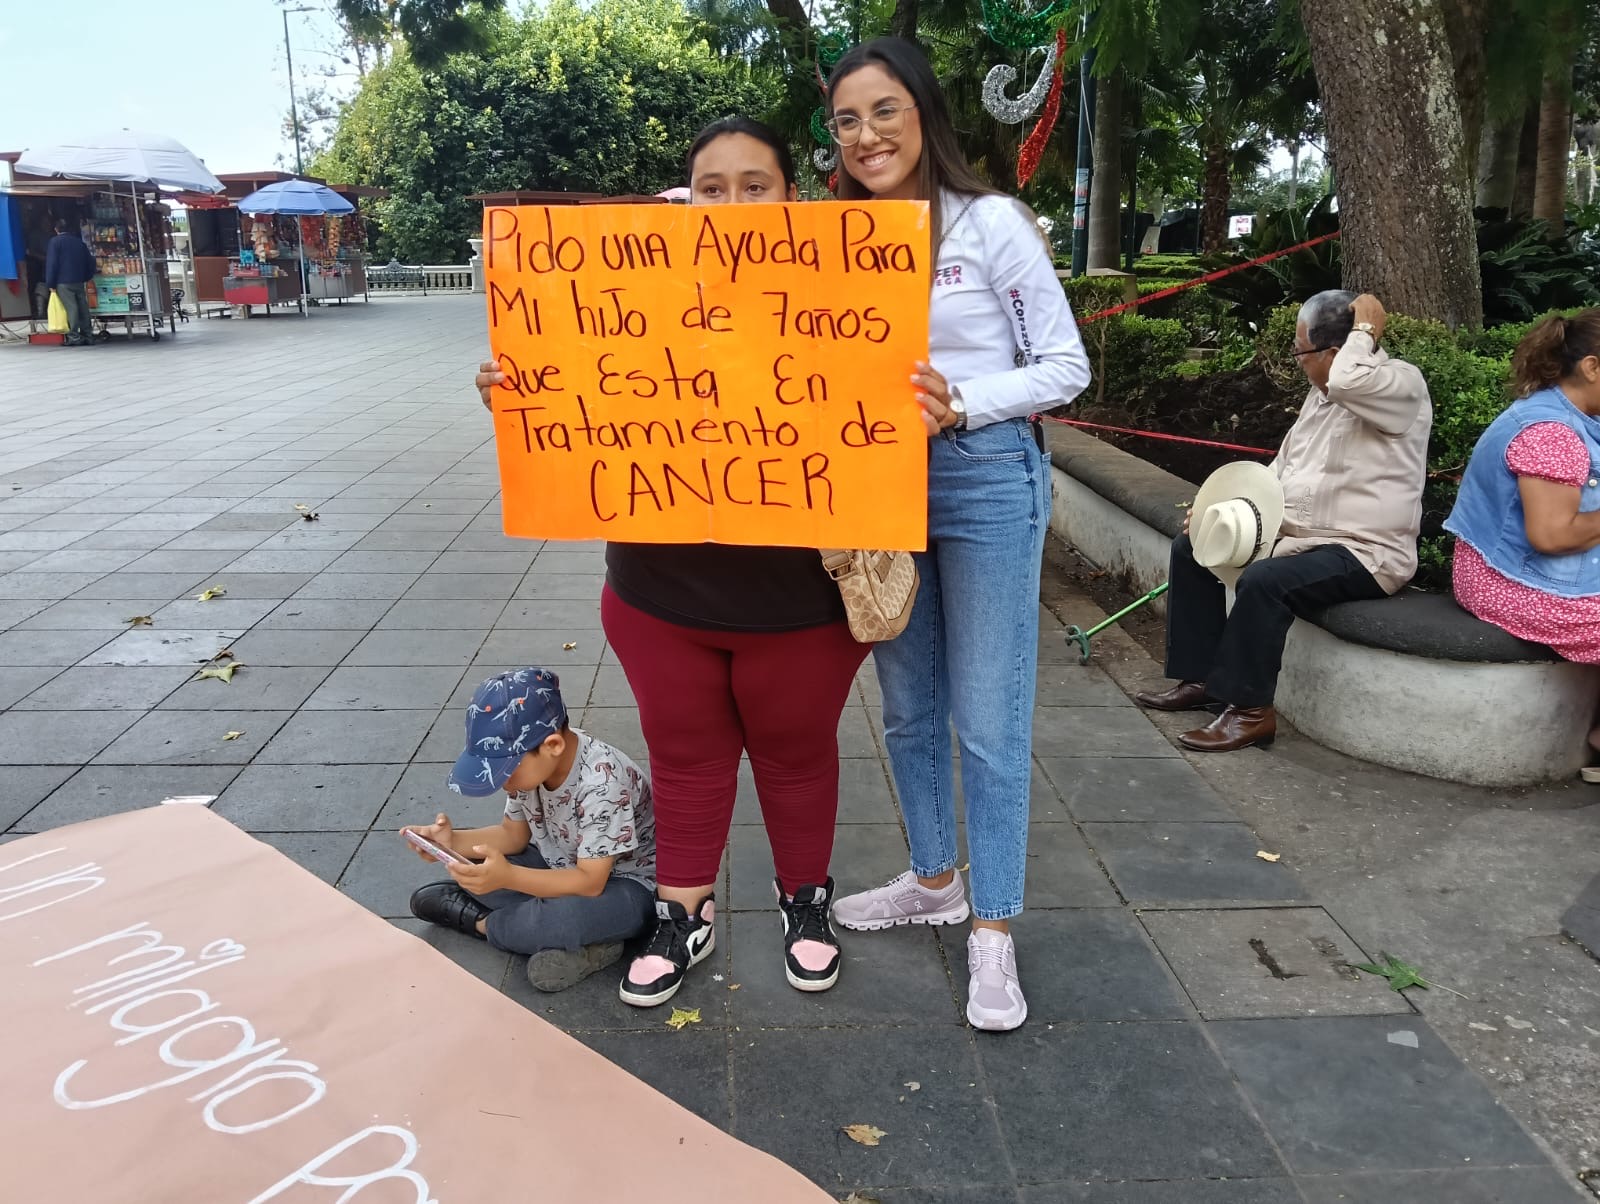 Pido una Ayuda Para
Mi hijo de 7 años
Que Esta En
Tratamiento de
CANCER
FER
EGA
#Corazón
un milagro Pa